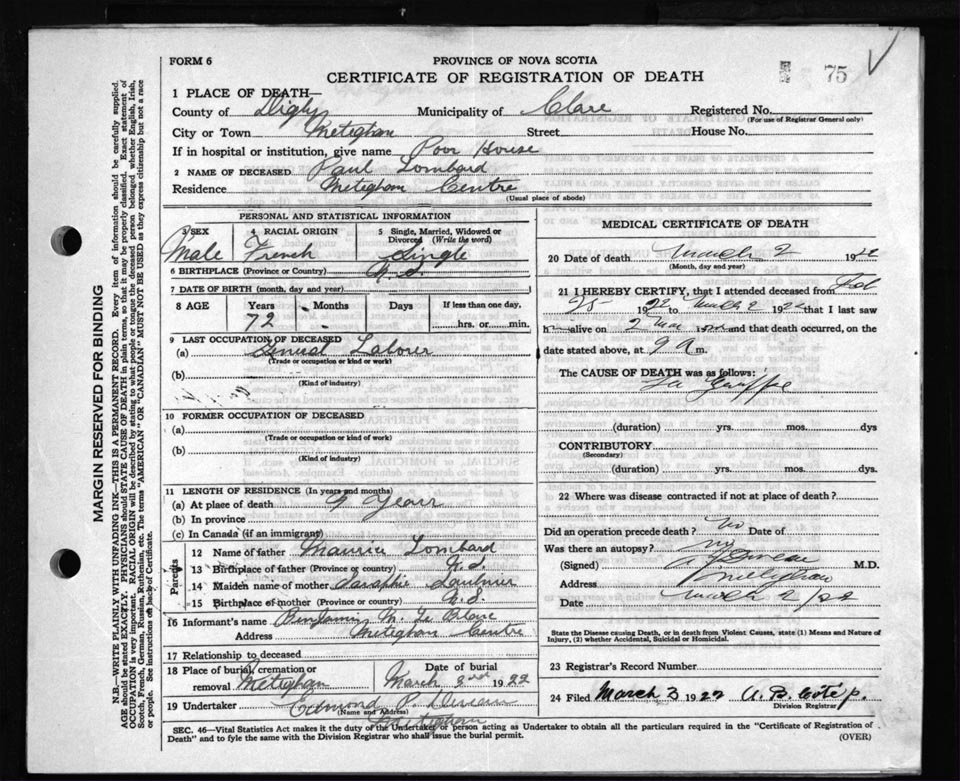 FORM 6
PROVINCE OF NOVA SCOTIA
CERTIFICATE OF REGISTRATION OF DEATH
75
1 PLACE OF DEATH—
County of Digby Municipality of Clare Registered No.
(For use of Registrar General only)
City or Town Meteghan Street House No.
If in hospital or institution, give name Poor House
2 NAME OF DECEASED Paul Lombard
Residence Meteghan Centre
(Usual place of abode)
PERSONAL AND STATISTICAL INFORMATION
3 SEX 4 RACIAL ORIGIN 5 Single, Married, Widowed or Divorced (Write the word)
Male French Single
6 BIRTHPLACE (Province or Country) N.S.
7 DATE OF BIRTH (month, day and year)
8 AGE Years Months Days If less than one day,
72 hrs. or min.
9 LAST OCCUPATION OF DECEASED
(a) General Laborer
(Trade or occupation or kind of work)
(b)
(Kind of industry)
10 FORMER OCCUPATION OF DECEASED
(a)
(Trade or occupation or kind of work)
(b)
(Kind of industry)
11 LENGTH OF RESIDENCE (In years and months)
(a) At place of death 9 Years
(b) In province
(c) In Canada (if an immigrant)
Parents
12 Name of father Maurice Lombard
13 Birthplace of father (Province or Country) N.S.
14 Maiden name of mother
15 Birthplace of mother (Province or Country) N.S.
16 Informant's name Benjamin M. Le Blanc
Address Meteghan Centre
17 Relationship to deceased
18 Place of burial, cremation or removal Meteghan Date of burial March 3rd 1922
19 Undertaker Edmond
(Name and Address)
Meteghan
MEDICAL CERTIFICATE OF DEATH
20 Date of death March 2 1922
(Month, day and year)
21 I HEREBY CERTIFY, that I attended deceased from Feb
25 1922 to March 2 1922 that I last saw
h alive on 2 Mar and that death occurred, on
date stated above, at 9 A m.
The CAUSE OF DEATH was as follows:
La Grippe
(duration) yrs. mos. dys
CONTRIBUTORY
(Secondary)
(duration) yrs. mos. dys.
22 Where was disease contracted if not at place of death?
Did an operation precede death? No Date of
Was there an autopsy? no
(Signed) M.D.
Address Meteghan
Date March 2/22
State the Disease causing Death, or in death from Violent Causes, state (1) Means and Nature of Injury, (2) whether Accidental, Suicidal or Homicidal.
23 Registrar's Record Number
24 Filed March 3 1922 A. B. Côté p.
Division Registrar
SEC. 46—Vital Statistics Act makes it the duty of the Undertaker or person acting as Undertaker to obtain all the particulars required in the "Certificate of Registration of
Death" and to fyle the same with the Division Registrar who shall issue the burial permit. (OVER)
MARGIN RESERVED FOR BINDING
N.B.—WRITE PLAINLY WITH UNFADING INK—THIS IS A PERMANENT RECORD. Every item of information should be carefully supplied.
AGE should be stated EXACTLY. PHYSICIANS should STATE CAUSE OF DEATH in plain terms, so that it may be properly classified. Exact statement of
OCCUPATION is very important. RACIAL ORIGIN will be described by stating to what people or tongue the deceased person belonged whether English, Irish,
Scotch, French, German, Russian, Ruthenian, etc. The terms "AMERICAN" OR "CANADIAN" MUST NOT BE USED as they express citizenship but not a race
or people. See instructions on back of Certificate.